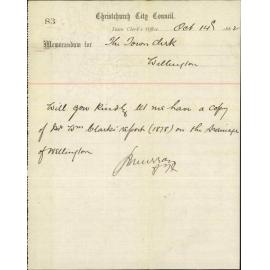 83
Christchurch City Council.
Town Clerk's Office
Oct 14th
Memorandum for
The Town Clerk
Wellington
Will you kindly let me have a copy
of Mr Wm Clark's report (1878) on the Drainage
of Wellington